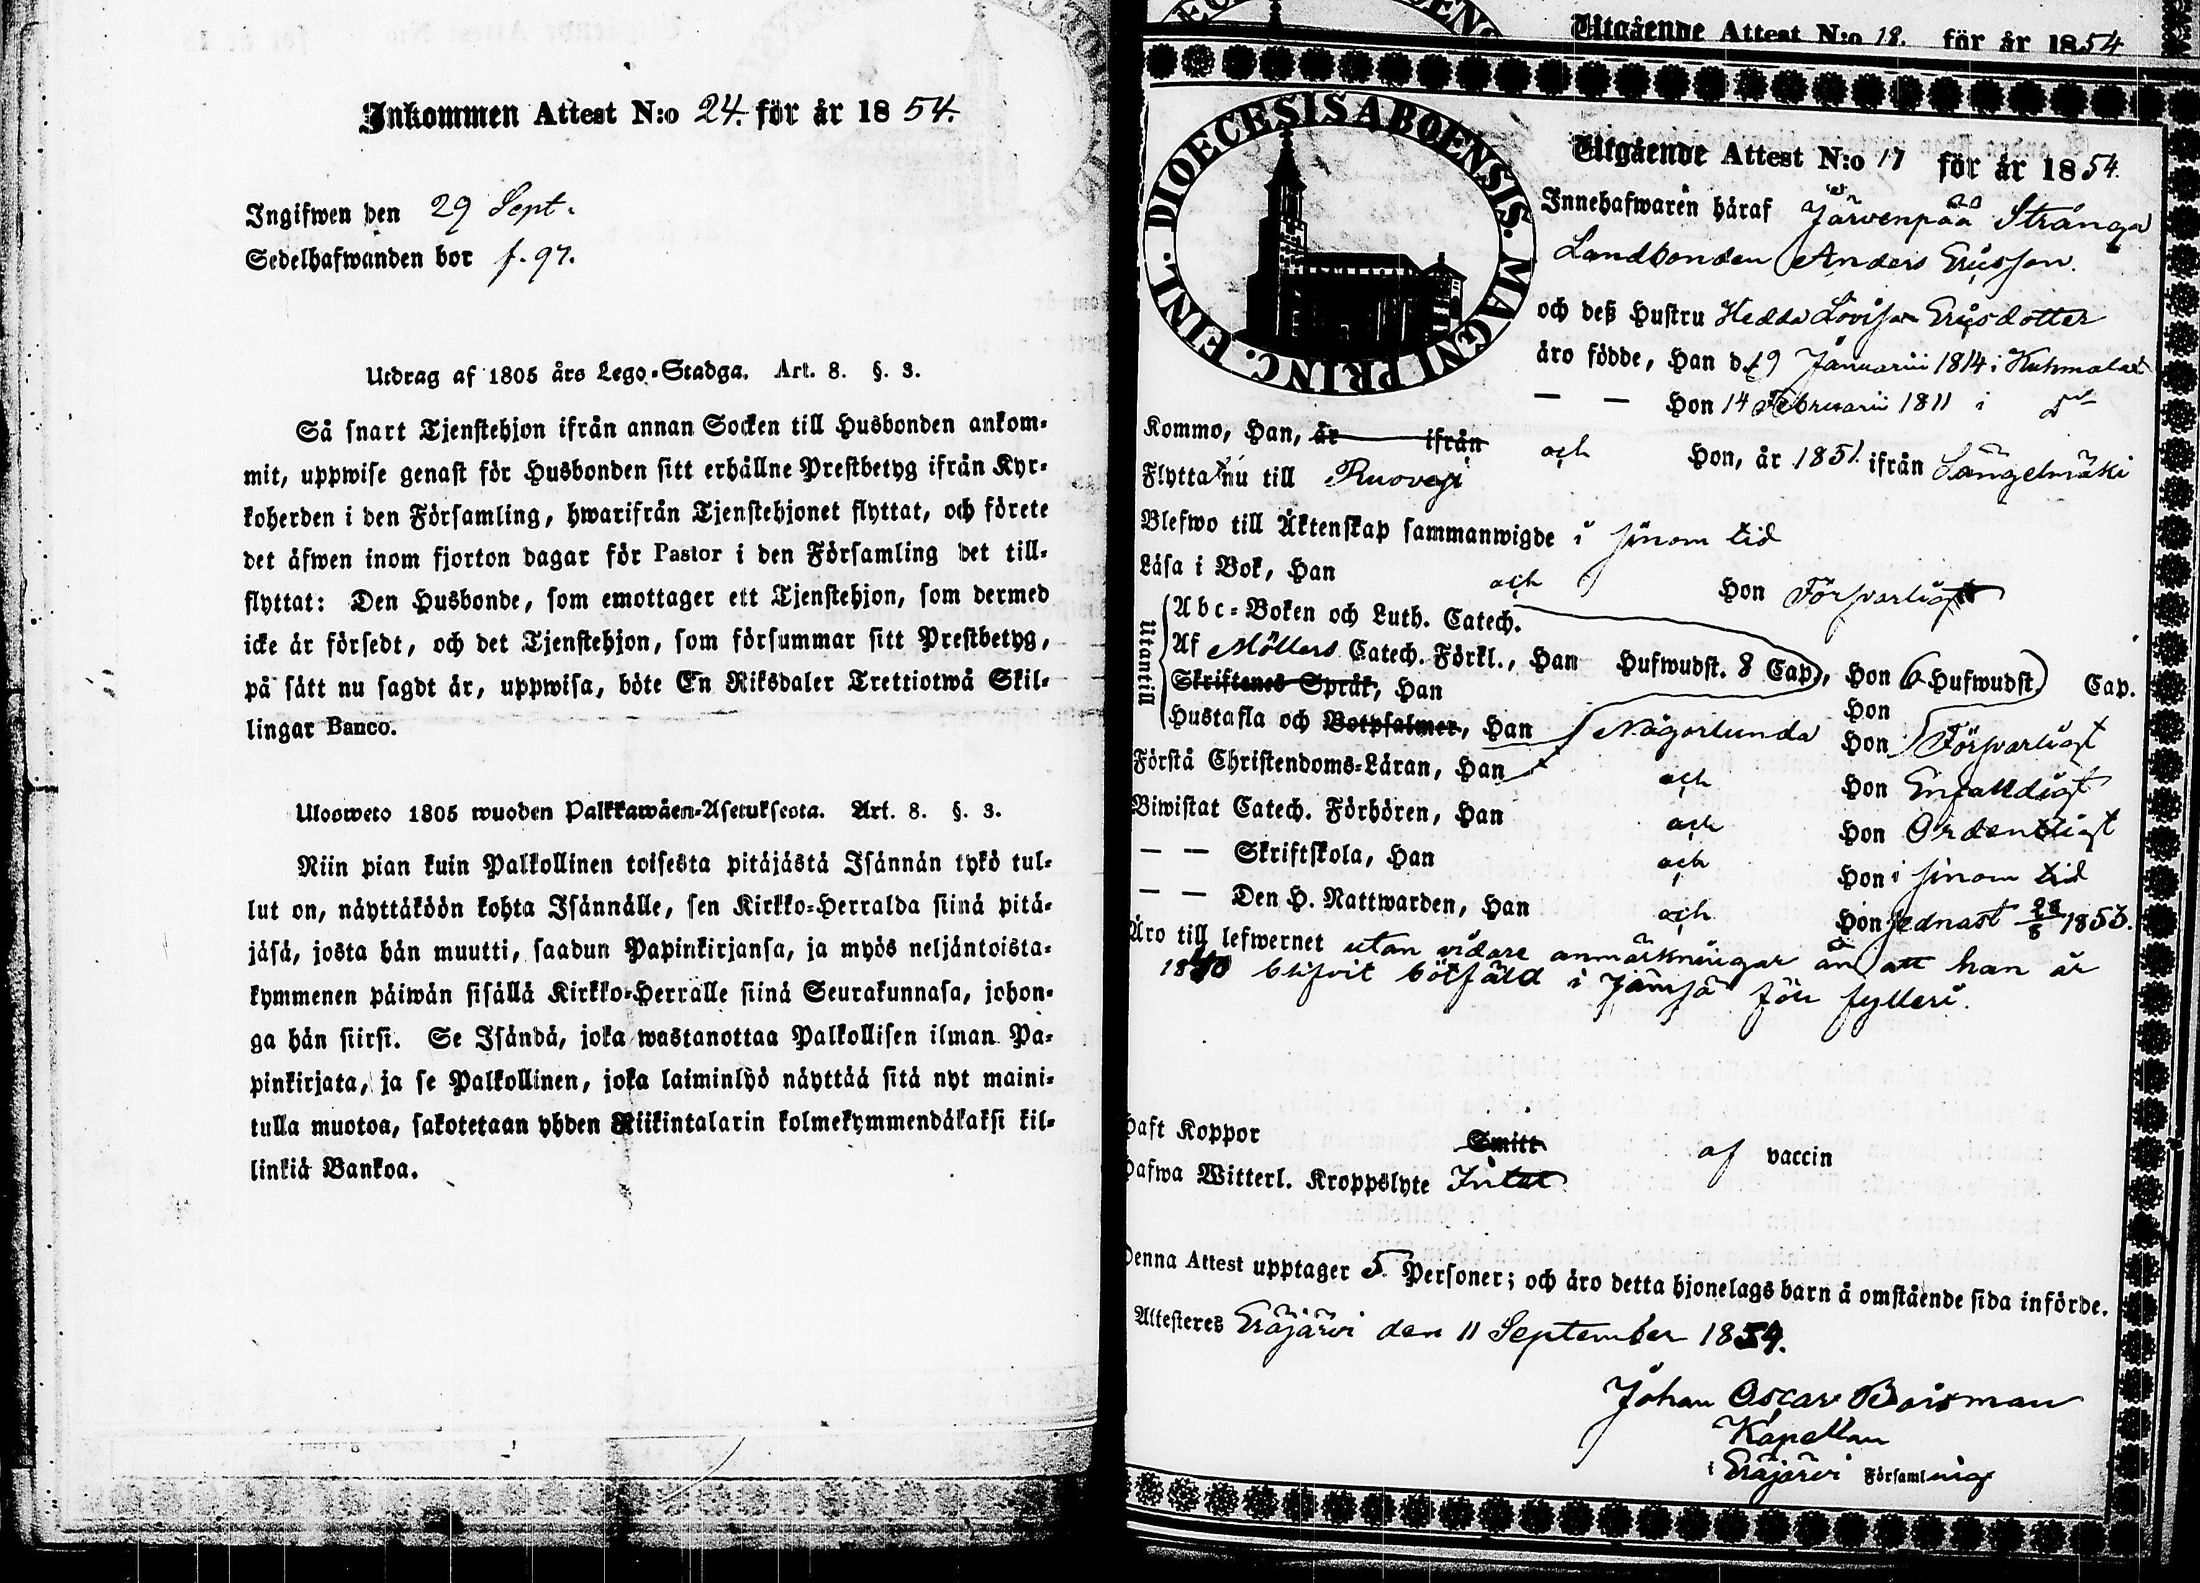 Inkommen Attest N:o 24. för år 1854.
Ingifwen den 29 Sept.
Sedelhafwanden bor f. 97.
Utdrag af 1805 års Lego-Stadga. Art. 8. §. 3.
Så snart Tjenstehjon ifrån annan Socken till Husbonden ankom-
mit, uppwise genast för Husbonden sitt erhållne Prestbetyg ifrån Kyr-
koherden i den Församling, hwarifrån Tjenstehjonet flyttat, och förete
det äfwen inom fjorton dagar för Pastor i den Församling det till-
flyttat: Den Husbonde, som emottager ett Tjenstehjon, som dermed
icke är försedt, och det Tjenstehjon, som försummar sitt Prestbetyg,
på sätt nu sagdt är, uppwisa, böte En Riksdaler Trettiotwå Skil-
lingar Banco.
Ulosweto 1805 wuoden Palkkawäen-Asetuksesta. Art. 8. §. 3.
Niin pian kuin Palkollinen toisesta pitäjästä Isännän tykö tul-
lut on, näyttäköön kohta Isännälle, sen Kirkko-Herralda siinä pitä-
jäsä, josta hän muutti, saadun Papinkirjansa, ja myös neljäntoista-
kymmenen päiwän sisällä Kirkko-Herralle siinä Seurakunnasa, johon-
ga hän siirsi. Se Isändä, joka wastanottaa Palkollisen ilman Pa-
pinkirjata, ja se Palkollinen, joka laiminlyö näyttää sitä nyt maini-
tulla muotoa, sakotetaan yhden Riikintalarin kolmekymmendäkaksi kil-
linkiä Bankoa.
Utgående Attest N:o 18. för år 1854
DIOECESIS ABOENSIS. MAGNI PRINC. FINL.
Utgående Attest N:o 17 för år 1854.
Innehafwaren häraf Järvenpää Strånga
Landbonden Anders Ericsson.
och deß Hustru Hedda Lovisa Ericsdotter
äro födde, Han d. 19 Januarii 1814 i Kuhmalax
— — Hon 14 Februarii 1811 i d:o
Kommo, Han, år ifrån och Hon, år 1851. ifrån Längelmäki
Flytta nu till Ruovesi
Blefwo till Äktenskap sammanwigde i sinom tid
Läsa i Bok, Han och Hon Försvarligt
Utantill
Abc-Boken och Luth. Catech.
Af Möllers Catech. Förkl., Han Hufwudst. 8 Cap., Hon 6 Hufwudst. Cap.
Skriftenes Språk, Han Hon
Hustafla och Botpsalmer, Han Någorlunda Hon Försvarligt
Förstå Christendoms-Läran, Han och Hon Enfalldigt
Biwistat Catech. Förhören, Han och Hon Ordentligt
— — Skriftskola, Han och Hon i sinom tid
— — Den H. Nattwarden, Han och Hon sednast 28/8 1853.
Äro till lefwernet utan vidare anmärkningar än att han är
1840 blifvit bötfäld i Jämsä för fylleri.
Haft Koppor Smitt af vaccin
Hafwa Witterl. Kroppslyte Intet
Denna Attest upptager 5. Personer; och äro detta hjonelags barn å omstående sida införde.
Attesteres Eräjärvi den 11 September 1854.
Johan Oscar Boisman
Kapellan
i Eräjärvi Församling